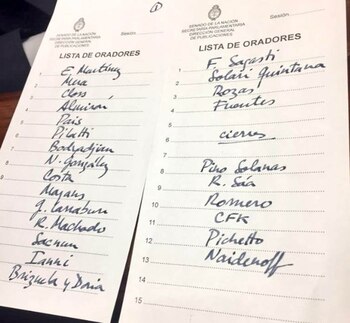 SENADO DE LA NACIÓN
SECRETARIA PARLAMENTARIA
DIRECCION GENERAL
DE PUBLICACIONES
Sesión
LISTA DE ORADORES
E. Martínez
Mera
Closs
Almirón
Pais
Pilatti
Bodradjian
N. González
Costa
Mayans
g. Larraburu
R. Machado
Sacnun
Ianni
Brizuela y Doria
SENADO DE LA NACION
SECRETARIA PARLAMENTARIA
DIRECCION GENERAL
DE PUBLICACIONES
Sesión
LISTA DE ORADORES
1 F. Sagasti
2 Solari Quintana
3 Rozas
4 Fuentes
5
6 cierres
7
8 Pino Solanas
9 R. Sáa
10 Romero
11 CFK
12 Pichetto
13 Naidenoff
14
15